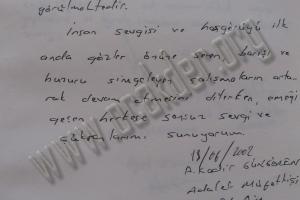 görülmektedir.
İnsan sevgisi ve hoşgörüyü ilk
anda gözler önüne seren, barışı ve
huzuru simgeleyen çalışmaların arta-
rak devam etmesini dilerken, emeği
geçen herkese sonsuz sevgi ve
şükranlarımı sunuyorum.
13/06/2002
A. Kadir
Adalet Müfettişi